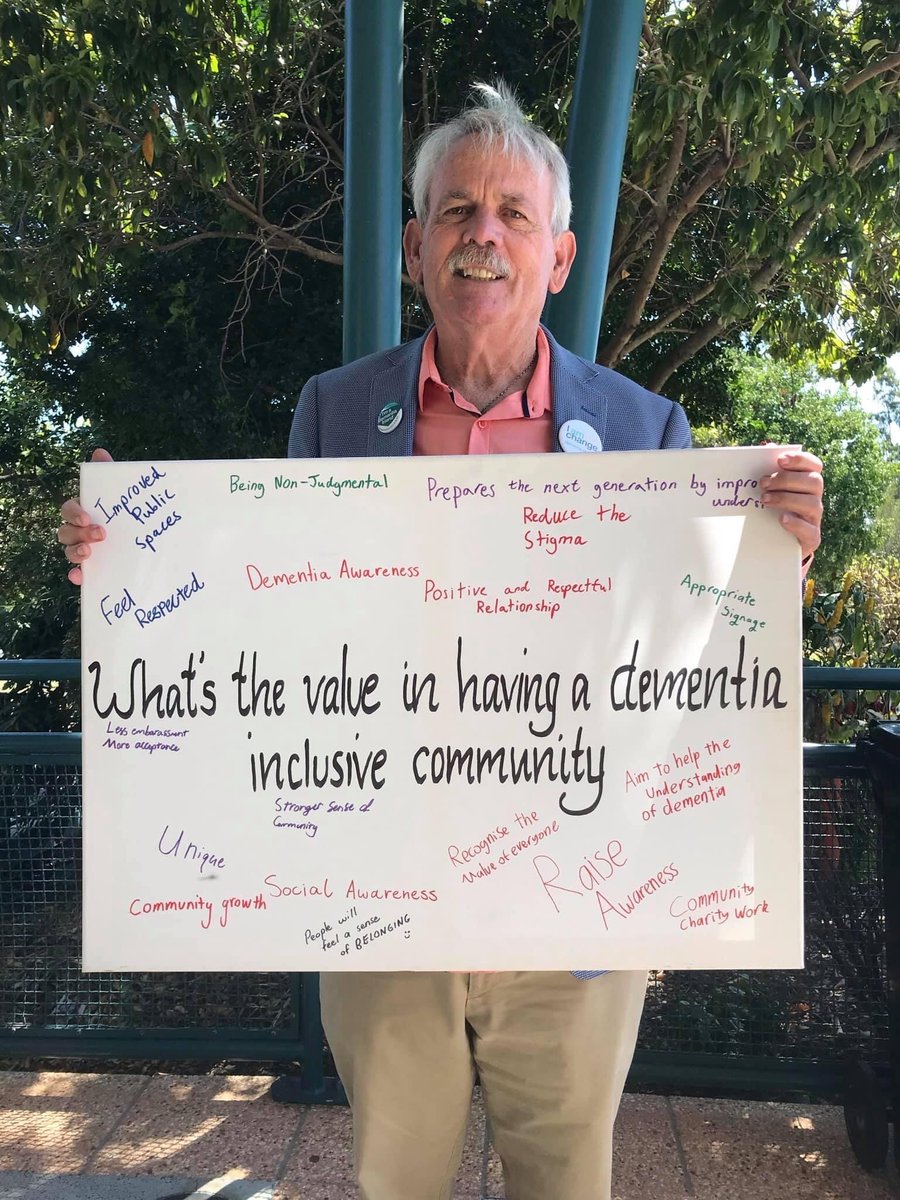 I am
change
Improved
Public
Spaces
Being Non-Judgmental
Prepares the next generation by impro
underst
Reduce the
Stigma
Feel
Respected
Dementia Awareness
Positive and Respectful
Relationship
Appropriate
Signage
What's the value in having a dementia
inclusive community
Less embarassment
More acceptance
Stronger Sense of
Community
Aim to help the
Understanding
of dementia
Unique
Recognise the
Value of everyone
Raise
Awareness
Community growth
Social Awareness
People will
feel a sense
of BELONGING
Community
Charity Work